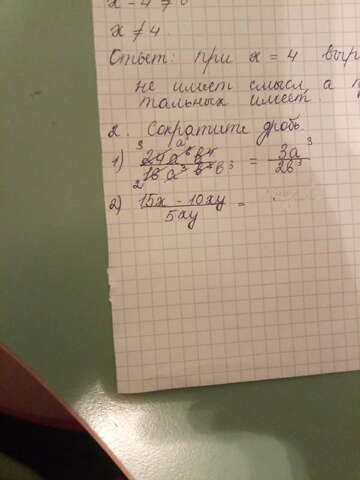 x - 4 ≠ 0
x ≠ 4.
Ответ: при x = 4 выр
не имеет смысл, а п
тальных имеет
2. Сократите дробь.
1) 24a⁶b⁴ / 16a³b⁷ = 3a³ / 2b³
2) 15x - 10xy / 5xy =